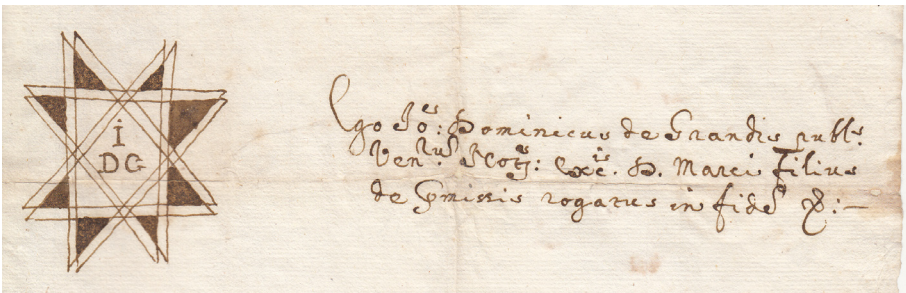 I
DG
Ego Joẽs: Dominicus de Grandis publs.
Ven.tus Nots: Exc.tis D. Marci Filius
de p̃missis rogatus in fidẽ